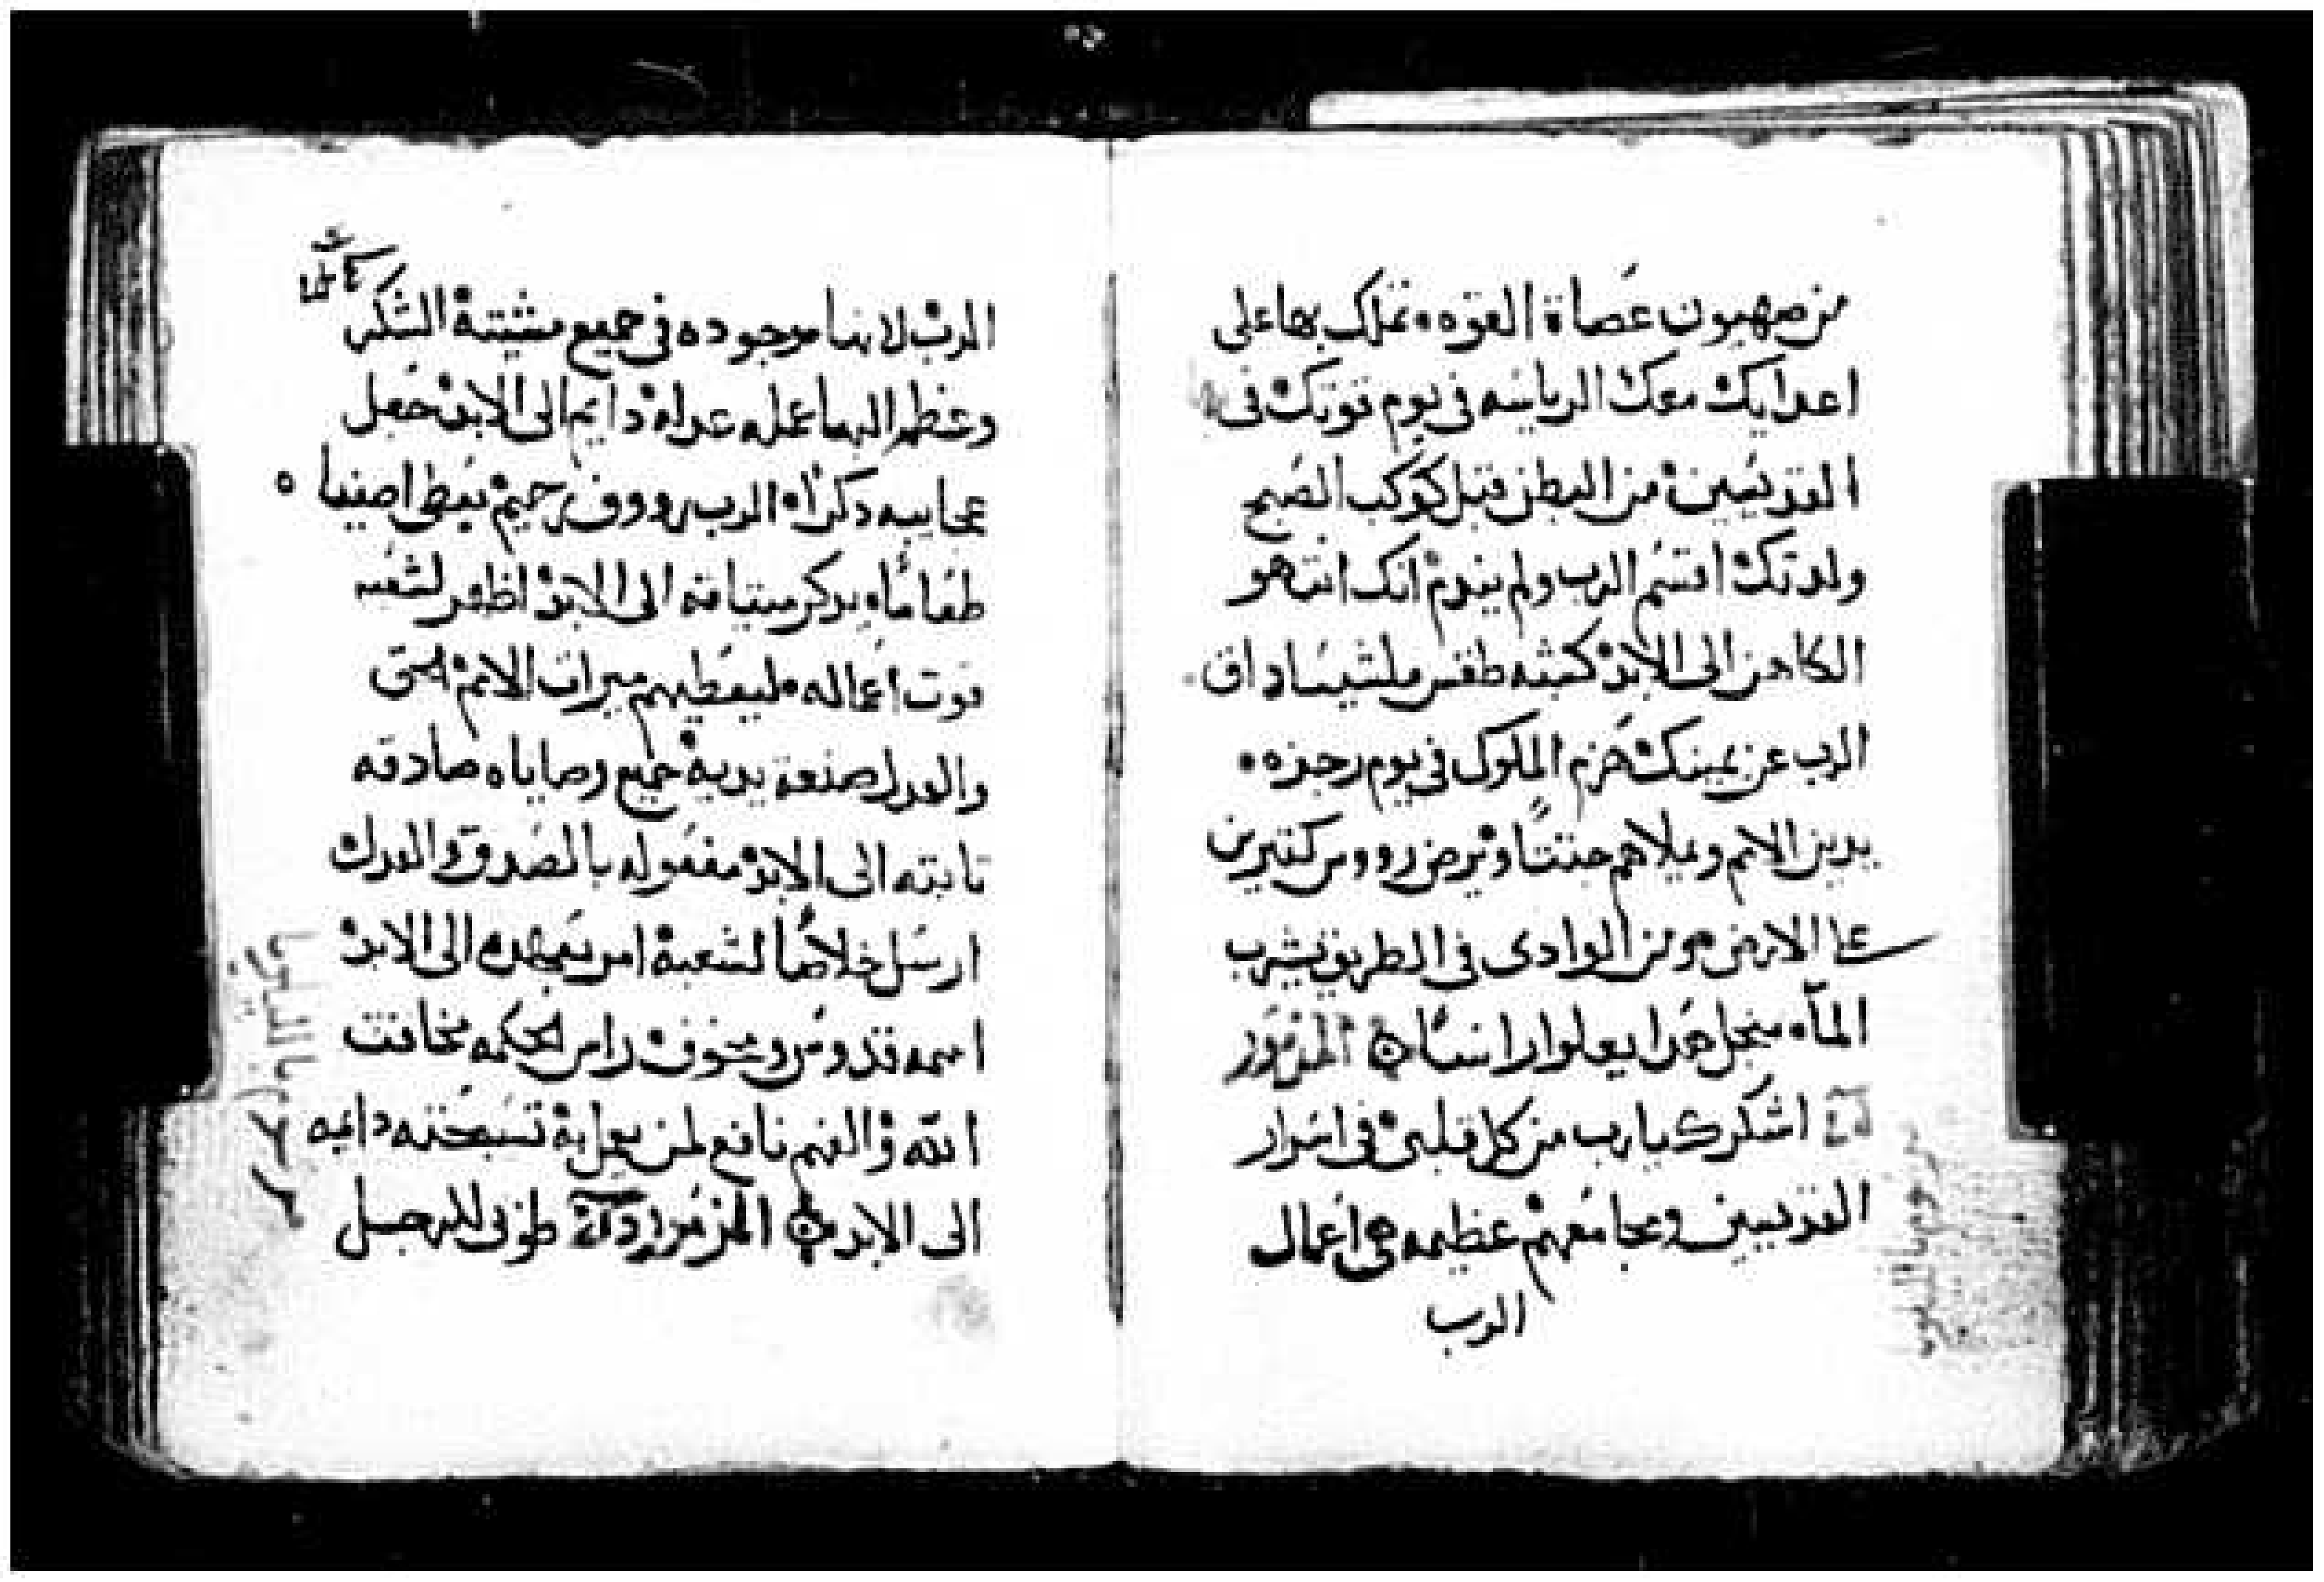 من صهيون عصاة القوه وتملك بها على
اعدايك معك الرياسه في يوم قوتك في
القديسين من البطن قبل كوكب الصبح
ولدتك اقسم الرب ولم يندم انك انت هو
الكاهن الى الابد كشبه طقس ملشيساداق
الرب عن يمينك هزم الملوك في يوم رجزه
يدين الامم ويملاهم جثثا ويرض رووس كثيرين
على الارض من الوادي في الطريق يشرب
الماء من اجل هدا يعلوا راسا المزمور
اشكرك يا رب من كل قلبي في اسرار
القديسين ومجامعهم عظيمه هي اعمال
الرب
الرب لانها موجوده في جميع مشيته الشكر
وعظم البها عمله عدله دايم الى الابد جعل
عجايبه دكرا الرب رووف رحيم يعطي اصفيا
طعاما ويدكر ميتاقه الى الابد اظهر لشعبه
قوت اعماله ليعطيهم ميرات الامم الحق
والعدل صنعة يديه جميع وصاياه صادقه
تابته الى الابد مفعوله بالصدق والعدل
ارسل خلاصا لشعبه امر بعهده الى الابد
اسمه قدوس ومخوف راس الحكمه مخافت
الله والفهم نافع لمن يعمل به تسبحته دايمه
الى الابد المزمور طوبى للرجل